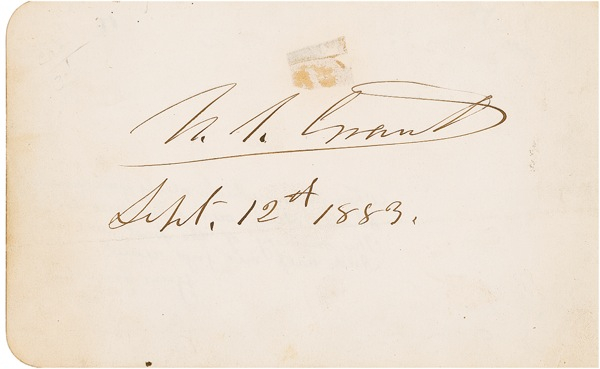 U. S. Grant
Sept. 12th 1883.